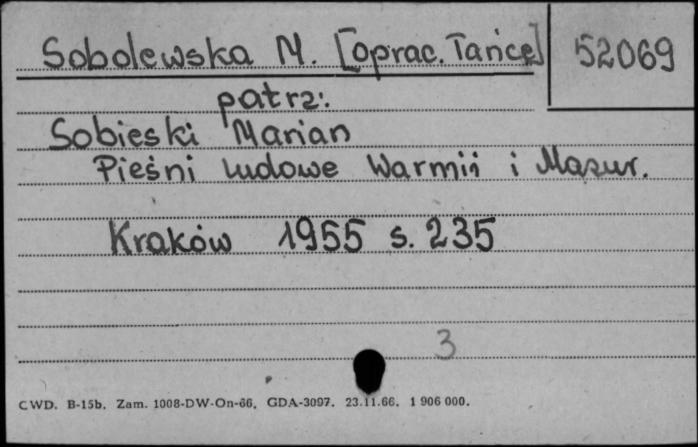 Sobolewska M. [oprac. Tańce] 52069
patrz:
Sobieski Marian
Pieśni ludowe Warmii i Mazur.
Kraków 1955 s. 235
3
CWD. B-15b. Zam. 1008-DW-On-66. GDA-3097. 23.11.66. 1 906 000.